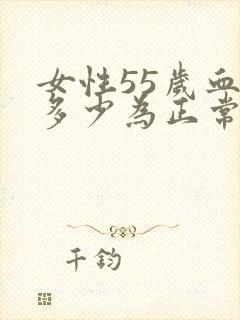 女性55歲血
多少為正常
千鈞